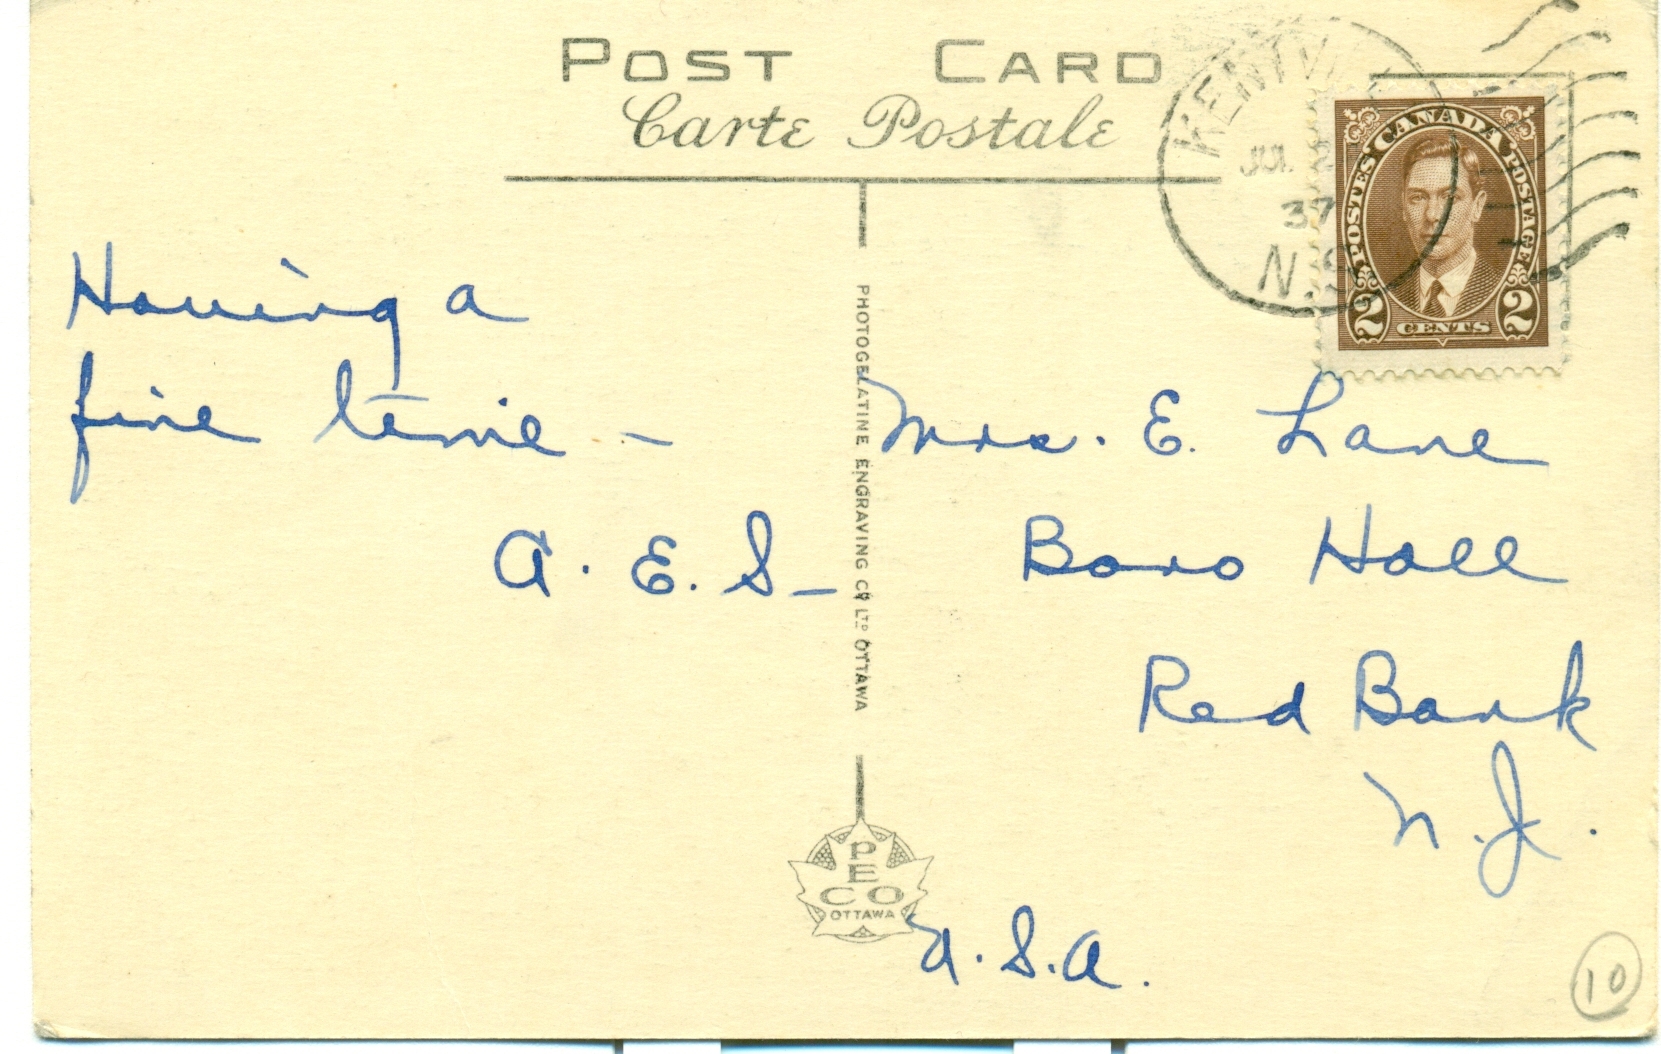 POST CARD
Carte Postale
KENTVILLE
JUL 2
37
N.S.
POSTES CANADA POSTAGE
2 CENTS 2
Having a
fine time –
A. E. S –
PHOTOGELATINE ENGRAVING CO LTD OTTAWA
Mrs. E. Lane
Boro Hall
Red Bank
N. J.
U. S. A.
PECO
OTTAWA
10